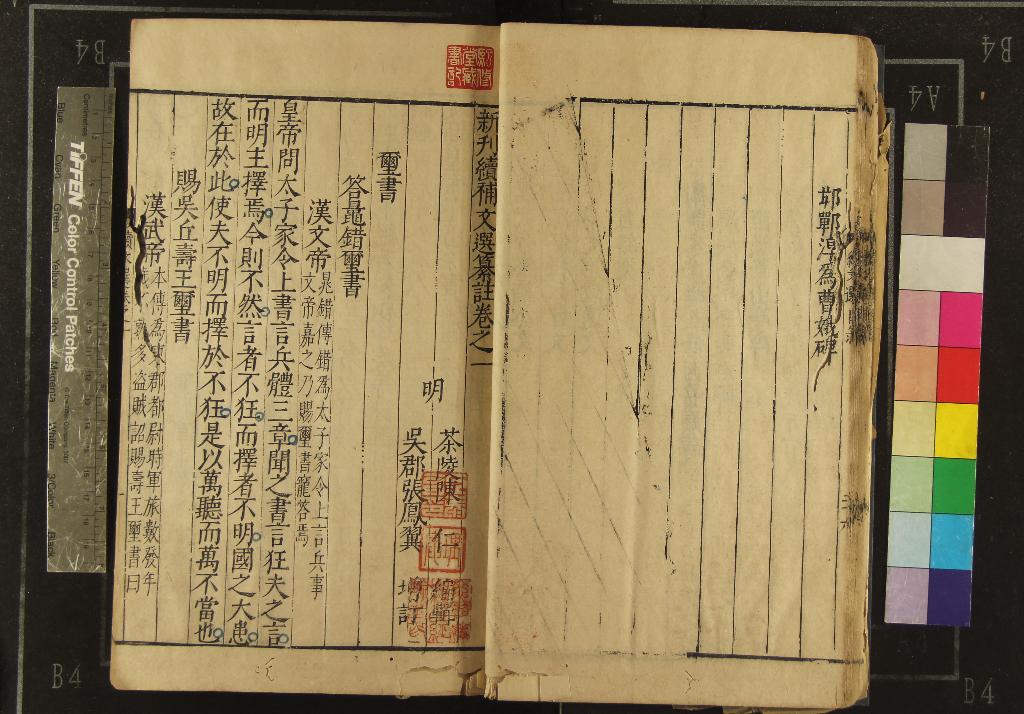 邯鄲淳爲曹娥碑
新刊續補文選纂註卷之一
茶陵陳 仁 編輯
明
吳郡張鳳翼 增訂
璽書
答鼂錯璽書
漢文帝 鼂錯傳錯爲太子家令上言兵事
文帝嘉之乃賜璽書寵答焉
皇帝問太子家令上書言兵體三章聞之書言狂夫之言
而明主擇焉今則不然言者不狂而擇者不明國之大患
故在於此使夫不明而擇於不狂是以萬聽而萬不當也
賜吳丘壽王璽書
漢武帝 本傳爲東郡都尉時軍旅數發年
歲不熟多盜賊詔賜壽王璽書曰
B4
B4
A4
B4
B4
TIFFEN Color Control Patches